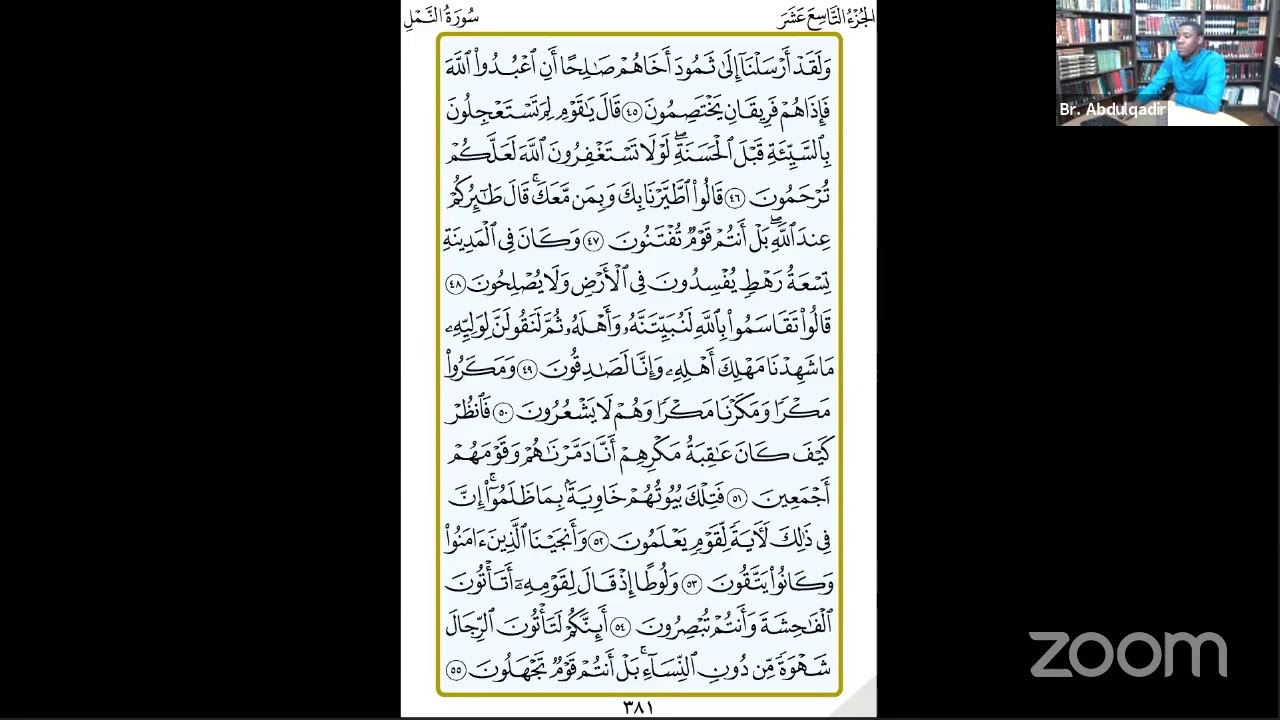 سُورَةُ النَّمْلِ
الجُزْءُ التَّاسِعَ عَشَرَ
وَلَقَدْ أَرْسَلْنَآ إِلَىٰ ثَمُودَ أَخَاهُمْ صَـٰلِحًا أَنِ ٱعْبُدُوا۟ ٱللَّهَ
فَإِذَا هُمْ فَرِيقَانِ يَخْتَصِمُونَ ٤٥ قَالَ يَـٰقَوْمِ لِمَ تَسْتَعْجِلُونَ
بِٱلسَّيِّئَةِ قَبْلَ ٱلْحَسَنَةِ ۖ لَوْلَا تَسْتَغْفِرُونَ ٱللَّهَ لَعَلَّكُمْ
تُرْحَمُونَ ٤٦ قَالُوا۟ ٱطَّيَّرْنَا بِكَ وَبِمَن مَّعَكَ ۚ قَالَ طَـٰٓئِرُكُمْ
عِندَ ٱللَّهِ ۖ بَلْ أَنتُمْ قَوْمٌ تُفْتَنُونَ ٤٧ وَكَانَ فِى ٱلْمَدِينَةِ
تِسْعَةُ رَهْطٍ يُفْسِدُونَ فِى ٱلْأَرْضِ وَلَا يُصْلِحُونَ ٤٨
قَالُوا۟ تَقَاسَمُوا۟ بِٱللَّهِ لَنُبَيِّتَنَّهُۥ وَأَهْلَهُۥ ثُمَّ لَنَقُولَنَّ لِوَلِيِّهِۦ
مَا شَهِدْنَا مَهْلِكَ أَهْلِهِۦ وَإِنَّا لَصَـٰدِقُونَ ٤٩ وَمَكَرُوا۟
مَكْرًا وَمَكَرْنَا مَكْرًا وَهُمْ لَا يَشْعُرُونَ ٥٠ فَٱنظُرْ
كَيْفَ كَانَ عَـٰقِبَةُ مَكْرِهِمْ أَنَّا دَمَّرْنَـٰهُمْ وَقَوْمَهُمْ
أَجْمَعِينَ ٥١ فَتِلْكَ بُيُوتُهُمْ خَاوِيَةًۢ بِمَا ظَلَمُوٓا۟ ۗ إِنَّ
فِى ذَٰلِكَ لَـَٔايَةً لِّقَوْمٍ يَعْلَمُونَ ٥٢ وَأَنجَيْنَا ٱلَّذِينَ ءَامَنُوا۟
وَكَانُوا۟ يَتَّقُونَ ٥٣ وَلُوطًا إِذْ قَالَ لِقَوْمِهِۦٓ أَتَأْتُونَ
ٱلْفَـٰحِشَةَ وَأَنتُمْ تُبْصِرُونَ ٥٤ أَئِنَّكُمْ لَتَأْتُونَ ٱلرِّجَالَ
شَهْوَةً مِّن دُونِ ٱلنِّسَآءِ ۚ بَلْ أَنتُمْ قَوْمٌ تَجْهَلُونَ ٥٥
٣٨١
Br. Abdulqadir
zoom